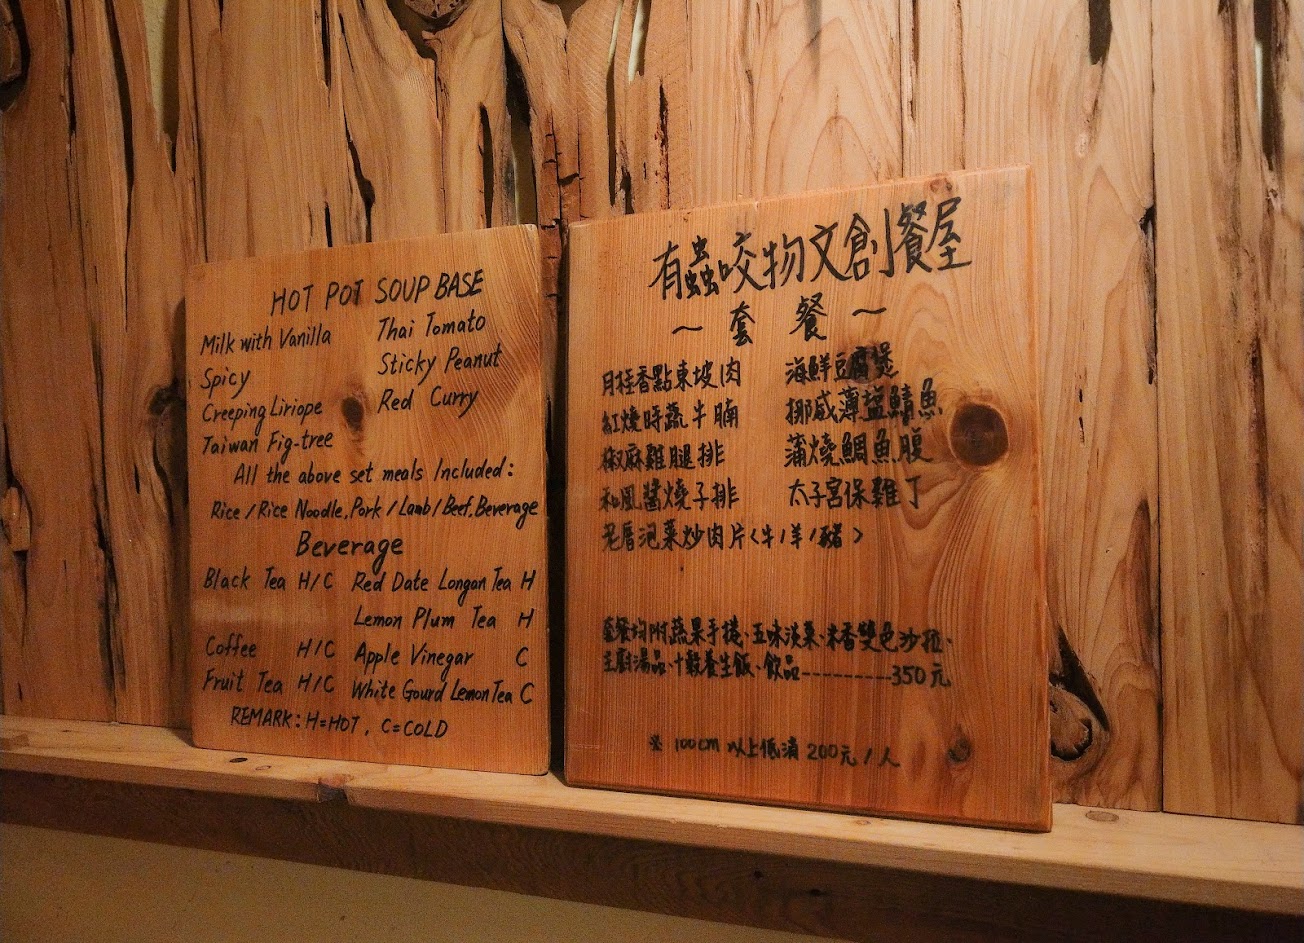 HOT POT SOUP BASE
Milk with Vanilla Thai Tomato
Spicy Sticky Peanut
Creeping Liriope Red Curry
Taiwan Fig-tree
All the above set meals Included:
Rice/Rice Noodle, Pork/Lamb/Beef, Beverage
Beverage
Black Tea H/C Red Date Longan Tea H
Lemon Plum Tea H
Coffee H/C Apple Vinegar C
Fruit Tea H/C White Gourd Lemon Tea C
REMARK: H=HOT, C=COLD
有蟲咬物文創餐屋
~ 套餐 ~
月桂香點東坡肉 海鮮豆腐煲
紅燒時蔬牛腩 挪威薄鹽鯖魚
椒麻雞腿排 蒲燒鯛魚腹
和風醬燒子排 太子宮保雞丁
老厝泡菜炒肉片<牛/羊/豬>
套餐均附蔬果手捲、五味淡菜、米香雙色沙拉、
主廚湯品、十穀養生飯、飲品---------350元
※ 100cm 以上低消 200元/人